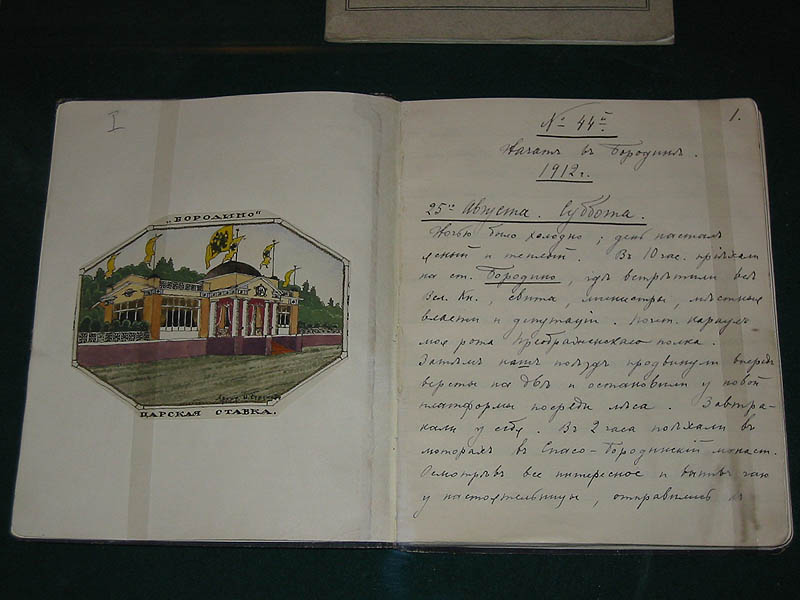 I
„БОРОДИНО“
ЦАРСКАЯ СТАВКА.
1.
№ 44й.
Начатъ въ Бородинѣ.
1912 г.
25го Августа. Суббота.
Ночью было холодно; день насталъ
ясный и теплый. Въ 10 час. пріѣхали
на ст. Бородино, гдѣ встрѣтили всѣ
Вел. Кн., свита, министры, мѣстныя
власти и депутаціи. Почт. караулъ
моя рота Преображенскаго полка.
Затѣмъ нашъ поѣздъ продвинули впередъ
версты на двѣ и остановили у новой
платформы посреди лѣса. Завтра-
кали у себя. Въ 2 часа поѣхали въ
моторахъ въ Спасо-Бородинскій монаст.
Осмотрѣвъ все интересное и выпивъ чаю
у настоятельницы, отправились къ